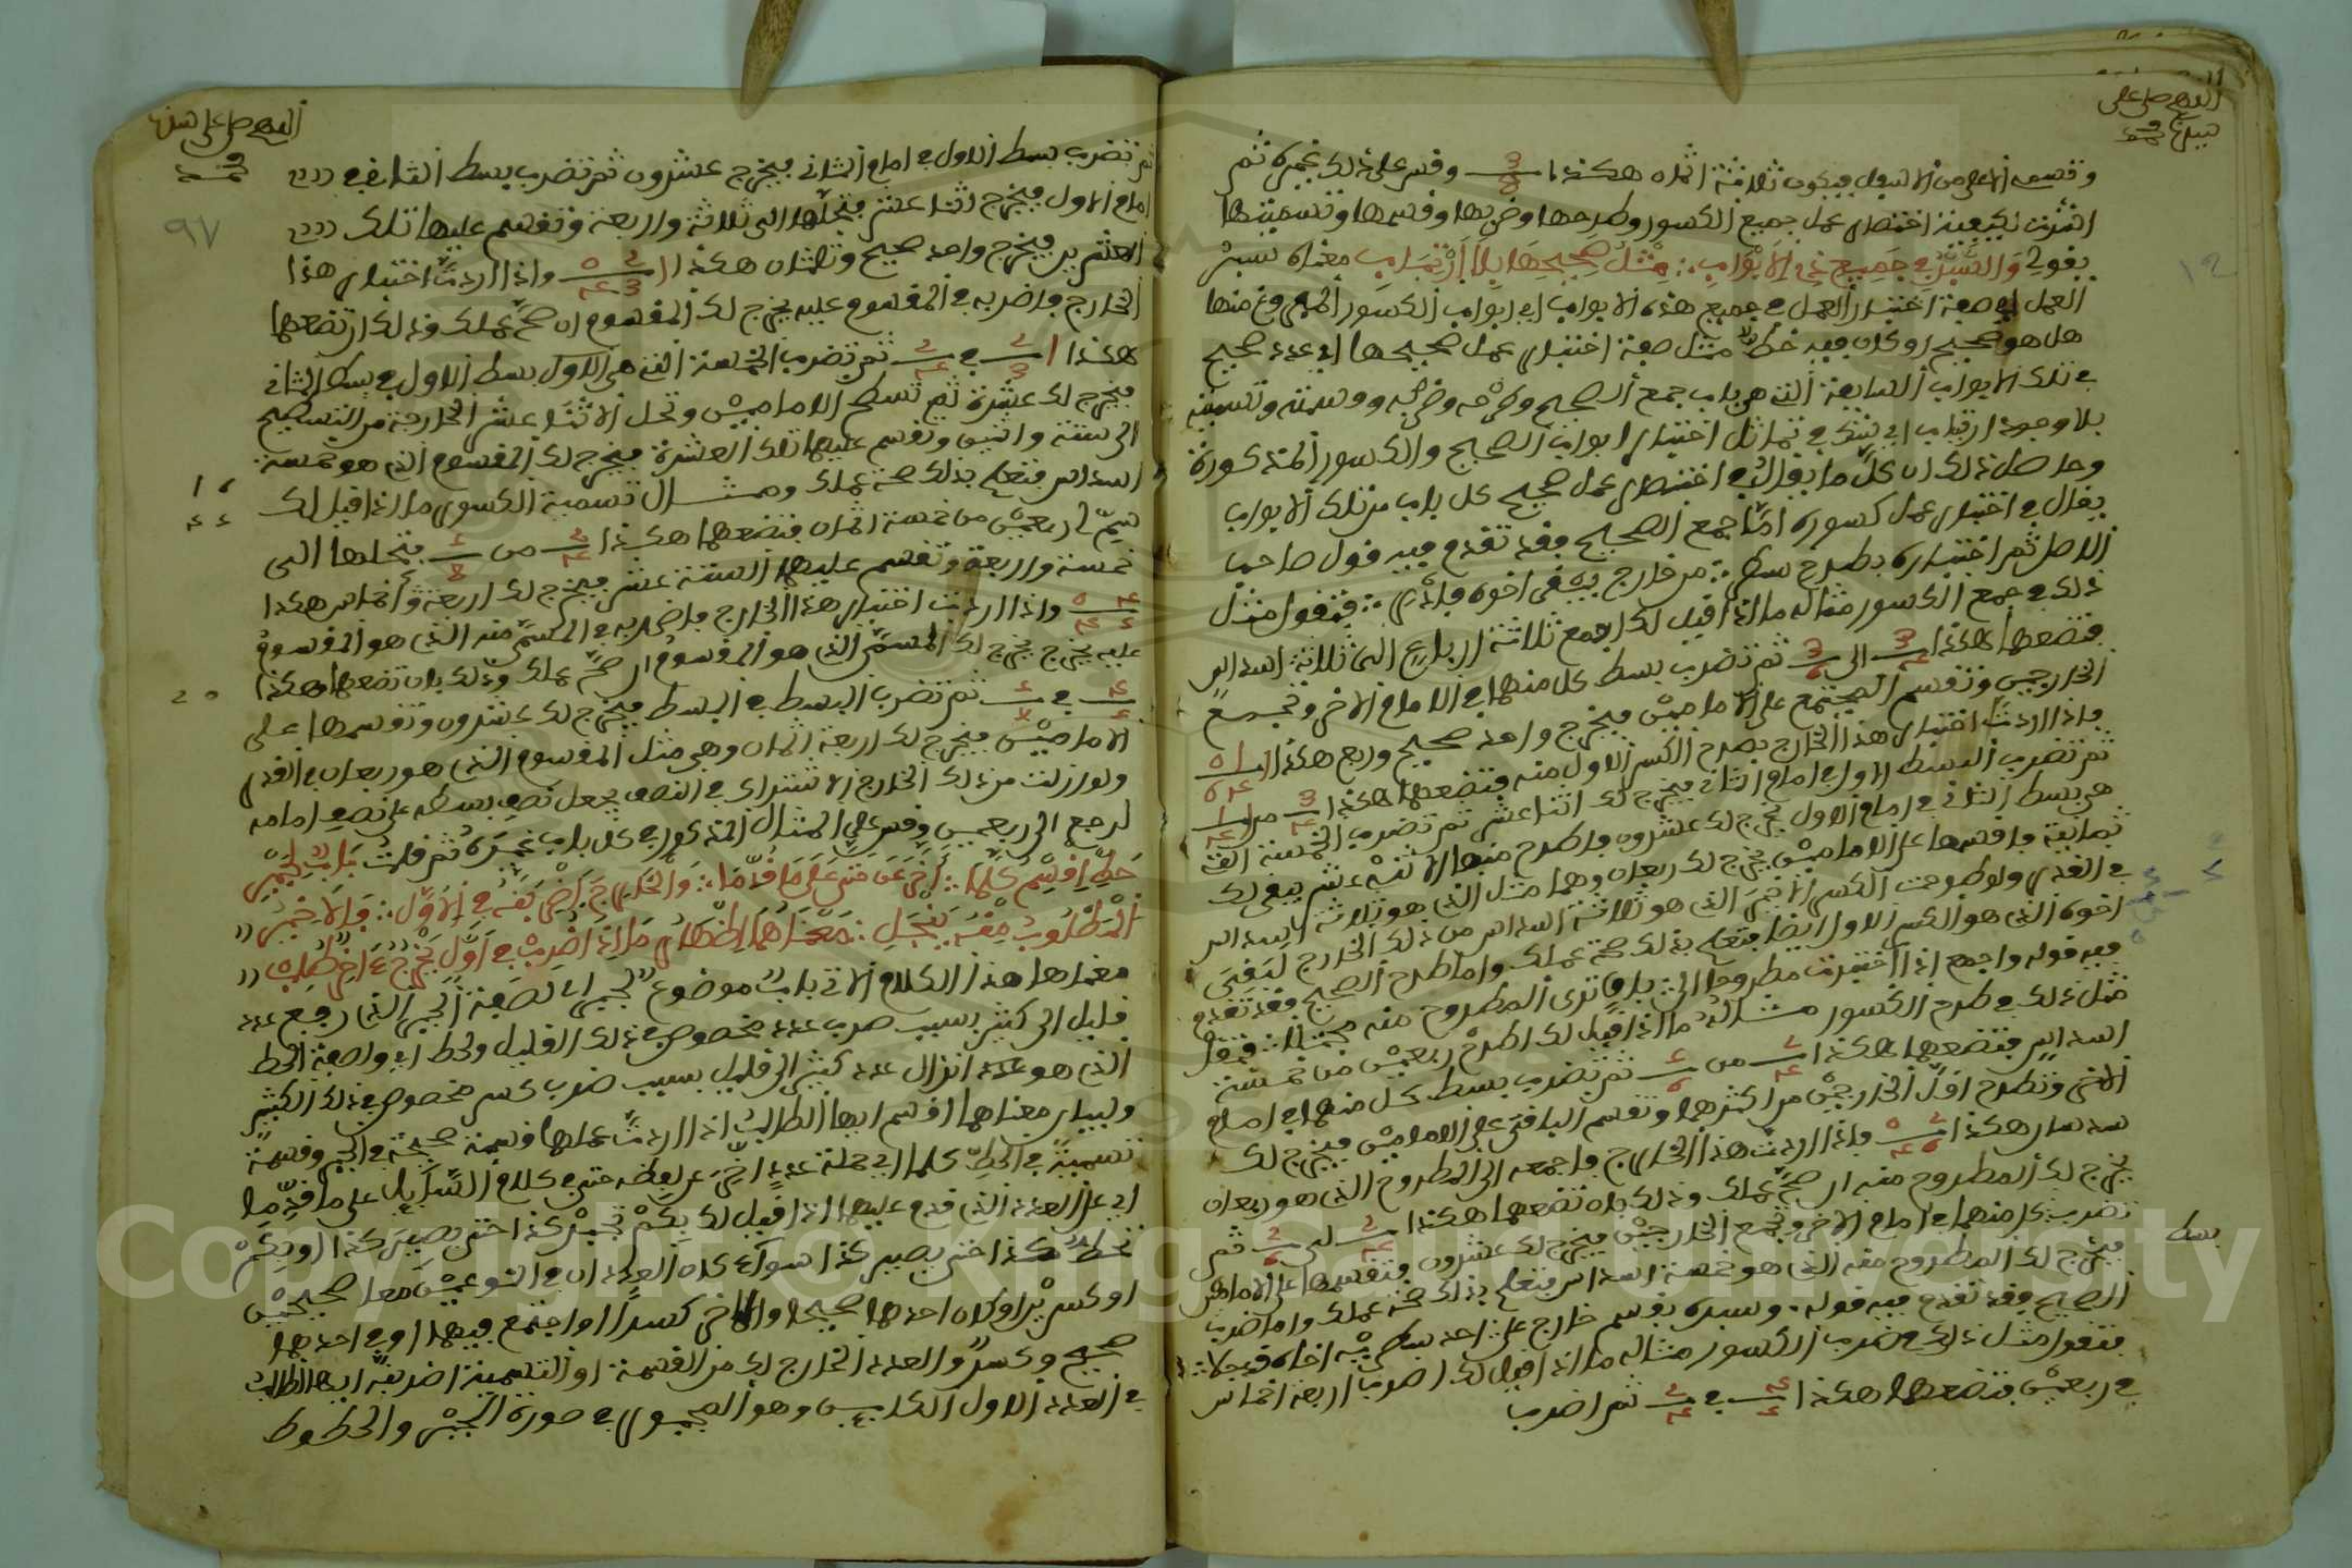 اللهم صل على
نبينا محمد
وقسمه الاعلى من الاسفل فيكون ثلاثة اثمان هكذا 3/8 وقس على ذلك غيره ثم
اشرت لكيفية اختصار عمل جميع الكسور وطرحها وضربها وقسمها وتسميتها
بقولي والسير في جميع ذي الابواب مثل صحيحها بلا ارتياب معناه سير
العمل اي صفة اختبار العمل في جميع هذه الابواب اي ابواب الكسور المفروغ منها
هل هو صحيح او كان فيه خطأ مثل صفة اختبار عمل صحيحها اي عدد صحيح
في تلك الابواب السابقة التي هي باب جمع الصحيح وطرحه وضربه وقسمته وتسميته
بلا وجود ارتياب اي شك في تماثل اختبار ابواب الصحيح والكسور المذكورة
وحاصل ذلك ان كل ما يقال في اختبار عمل صحيح كل باب من تلك الابواب
يقال في اختبار عمل كسوره اما جمع الصحيح فقد تقدم فيه قول صاحب
الاصل ثم اختباره بطرح سطر من خارج يبقى اخوه فادر فتقول مثل
ذلك في جمع الكسور مثاله ما اذا قيل لك اجمع ثلاثة ارباع الى ثلاثة اسداس
فتضعها هكذا 3/4 الى 3/6 ثم تضرب بسط كل منهما في امام الاخر وتجمع
الخارجين وتقسم المجتمع على الامامين فيخرج واحد صحيح وربع هكذا
فاذا اردت اختبار هذا الخارج بطرح الكسر الاول منه فتضعها هكذا 3/4 من
ثم تضرب البسط الاول في امام الثاني فيخرج لك اثنا عشر ثم تضرب الخمسة التي
هي بسط الثاني في امام الاول يخرج لك عشرون فاطرح منها الاثني عشر يبقى لك
ثمانية فاقسمها على الامامين يخرج لك ربعان وهما مثل الذي هو ثلاثة اسداس
في القدر ولو طرحت الكسر الاخير الذي هو ثلاثة اسداس من ذلك الخارج لبقي
اخوه الذي هو الكسر الاول ايضا فتعلم بذلك صحة عملك واما طرح الصحيح فقد تقدم
فيه قوله واجمع اذا اختبرت مطروحا الى باق ترى المطروح منه فتقول
مثل ذلك في طرح الكسور مثاله ما اذا قيل لك اطرح ربعين من خمسة
اسداس فتضعها هكذا 2/4 من 5/6 ثم تضرب بسط كل منهما في امام
الاخر وتطرح اقل الخارجين من اكثرهما وتقسم الباقي على الامامين فيخرج لك
سدسان هكذا فاذا اردت هذا الخارج فاجمعه الى المطروح الذي هو ربعان
يخرج لك المطروح منه ان صح عملك وذلك بان تضعها هكذا 2/4 الى 2/6 ثم
تضرب بسط كل منهما في امام الاخر وتجمع الخارجين فيخرج لك عشرون وتقسمها على الامامين
فيخرج لك المطروح منه الذي هو خمسة اسداس فتعلم بذلك صحة عملك واما ضرب
الصحيح فقد تقدم فيه قوله وسبره بقسم خارج على احد سطريه
فتقول مثل ذلك في ضرب الكسور مثاله ما اذا قيل لك اضرب اربعة اخماس
في ربعين فتضعها هكذا 4/5 في 2/4 ثم اضرب
اللهم صل على نبينا
محمد
٩٧
ثم تضرب بسط الاول في امام الثاني فيخرج عشرون ثم تضرب بسط الثاني في
امام الاول فيخرج اثنا عشر فتحلها الى ثلاثة واربعة وتقسم عليها تلك
العشرين فيخرج واحد صحيح وثلثان هكذا واذا اردت اختبار هذا
الخارج فاضربه في المقسوم عليه يخرج لك المقسوم ان صح عملك وذلك ان تضعها
هكذا ثم تضرب الخمسة التي هي الاول بسط الاول في بسط الثاني
فيخرج لك عشرة ثم تسطح الامامين وتحل الاثنا عشر الخارجة من التسطيح
الى ستة واثنين وتقسم عليها تلك العشرة فيخرج لك المقسوم الذي هو خمسة
اسداس فتعلم بذلك صحة عملك ومثال تسمية الكسور ما اذا قيل لك
سم ربعين من خمسة اثمان فتضعها هكذا 2/4 من 5/8 فتحلها الى
خمسة واربعة وتقسم عليها الستة عشر فيخرج لك اربعة اخماس هكذا
واذا اردت اختبار هذا الخارج فاضربه في المسمى منه الذي هو المقسوم
عليه يخرج لك المسمى الذي هو المقسوم ان صح عملك وذلك بان تضعها هكذا
4/5 في 5/8 ثم تضرب البسط في البسط فيخرج لك عشرون وتقسمها على
الامامين فيخرج لك اربعة اثمان وهي مثل المقسوم الذي هو ربعان في القدر
ولو ازلت من ذلك الخارج الاشتراك في النصف بجعل نصف بسطه على نصف امامه
لرجع الى ربعين وقس على المثال المذكور في كل باب غيره ثم قلت باب لجبر
حط اقسم كلما اخر عن متى على ما قدما والخارج اضربنه في الاول فالاخير
المطلوب منه ينجل
معناها هذا الكلام الاتي باب موضوع لجبر اي لصفة الجبر الذي رفع عدد
قليل الى كثير بسبب ضرب عدد مخصوص في ذلك القليل ولحط اي ولصفة الحط
الذي هو عدد انزال عدد كثير الى قليل بسبب ضرب كسر مخصوص في ذلك الكثير
ولبيان معناها اقسم ايها الطالب اذا اردت عملها قسمة صحيحة في الجبر وقسمة
تسمية في الحط كلما اي جملة عدد اخر عن لفظه متى في كلام السائل على ما قدما
اي على العدد الذي قدم عليها اذا قيل لك بكم تجبر كذا حتى يصير كذا او بكم
تحط كذا حتى يصير كذا سواء كان العددان في النوعين معا صحيحين
او كسرين او كان احدهما صحيحا والاخر كسرا او اجتمع فيهما او في احدهما
صحيح وكسر والعدد الخارج لك من القسمة او التسمية اضربنه ايها الطالب
في العدد الاول الكاين وهو المجبور في صورة الجبر والمحطوط
Copyright © King Saud University